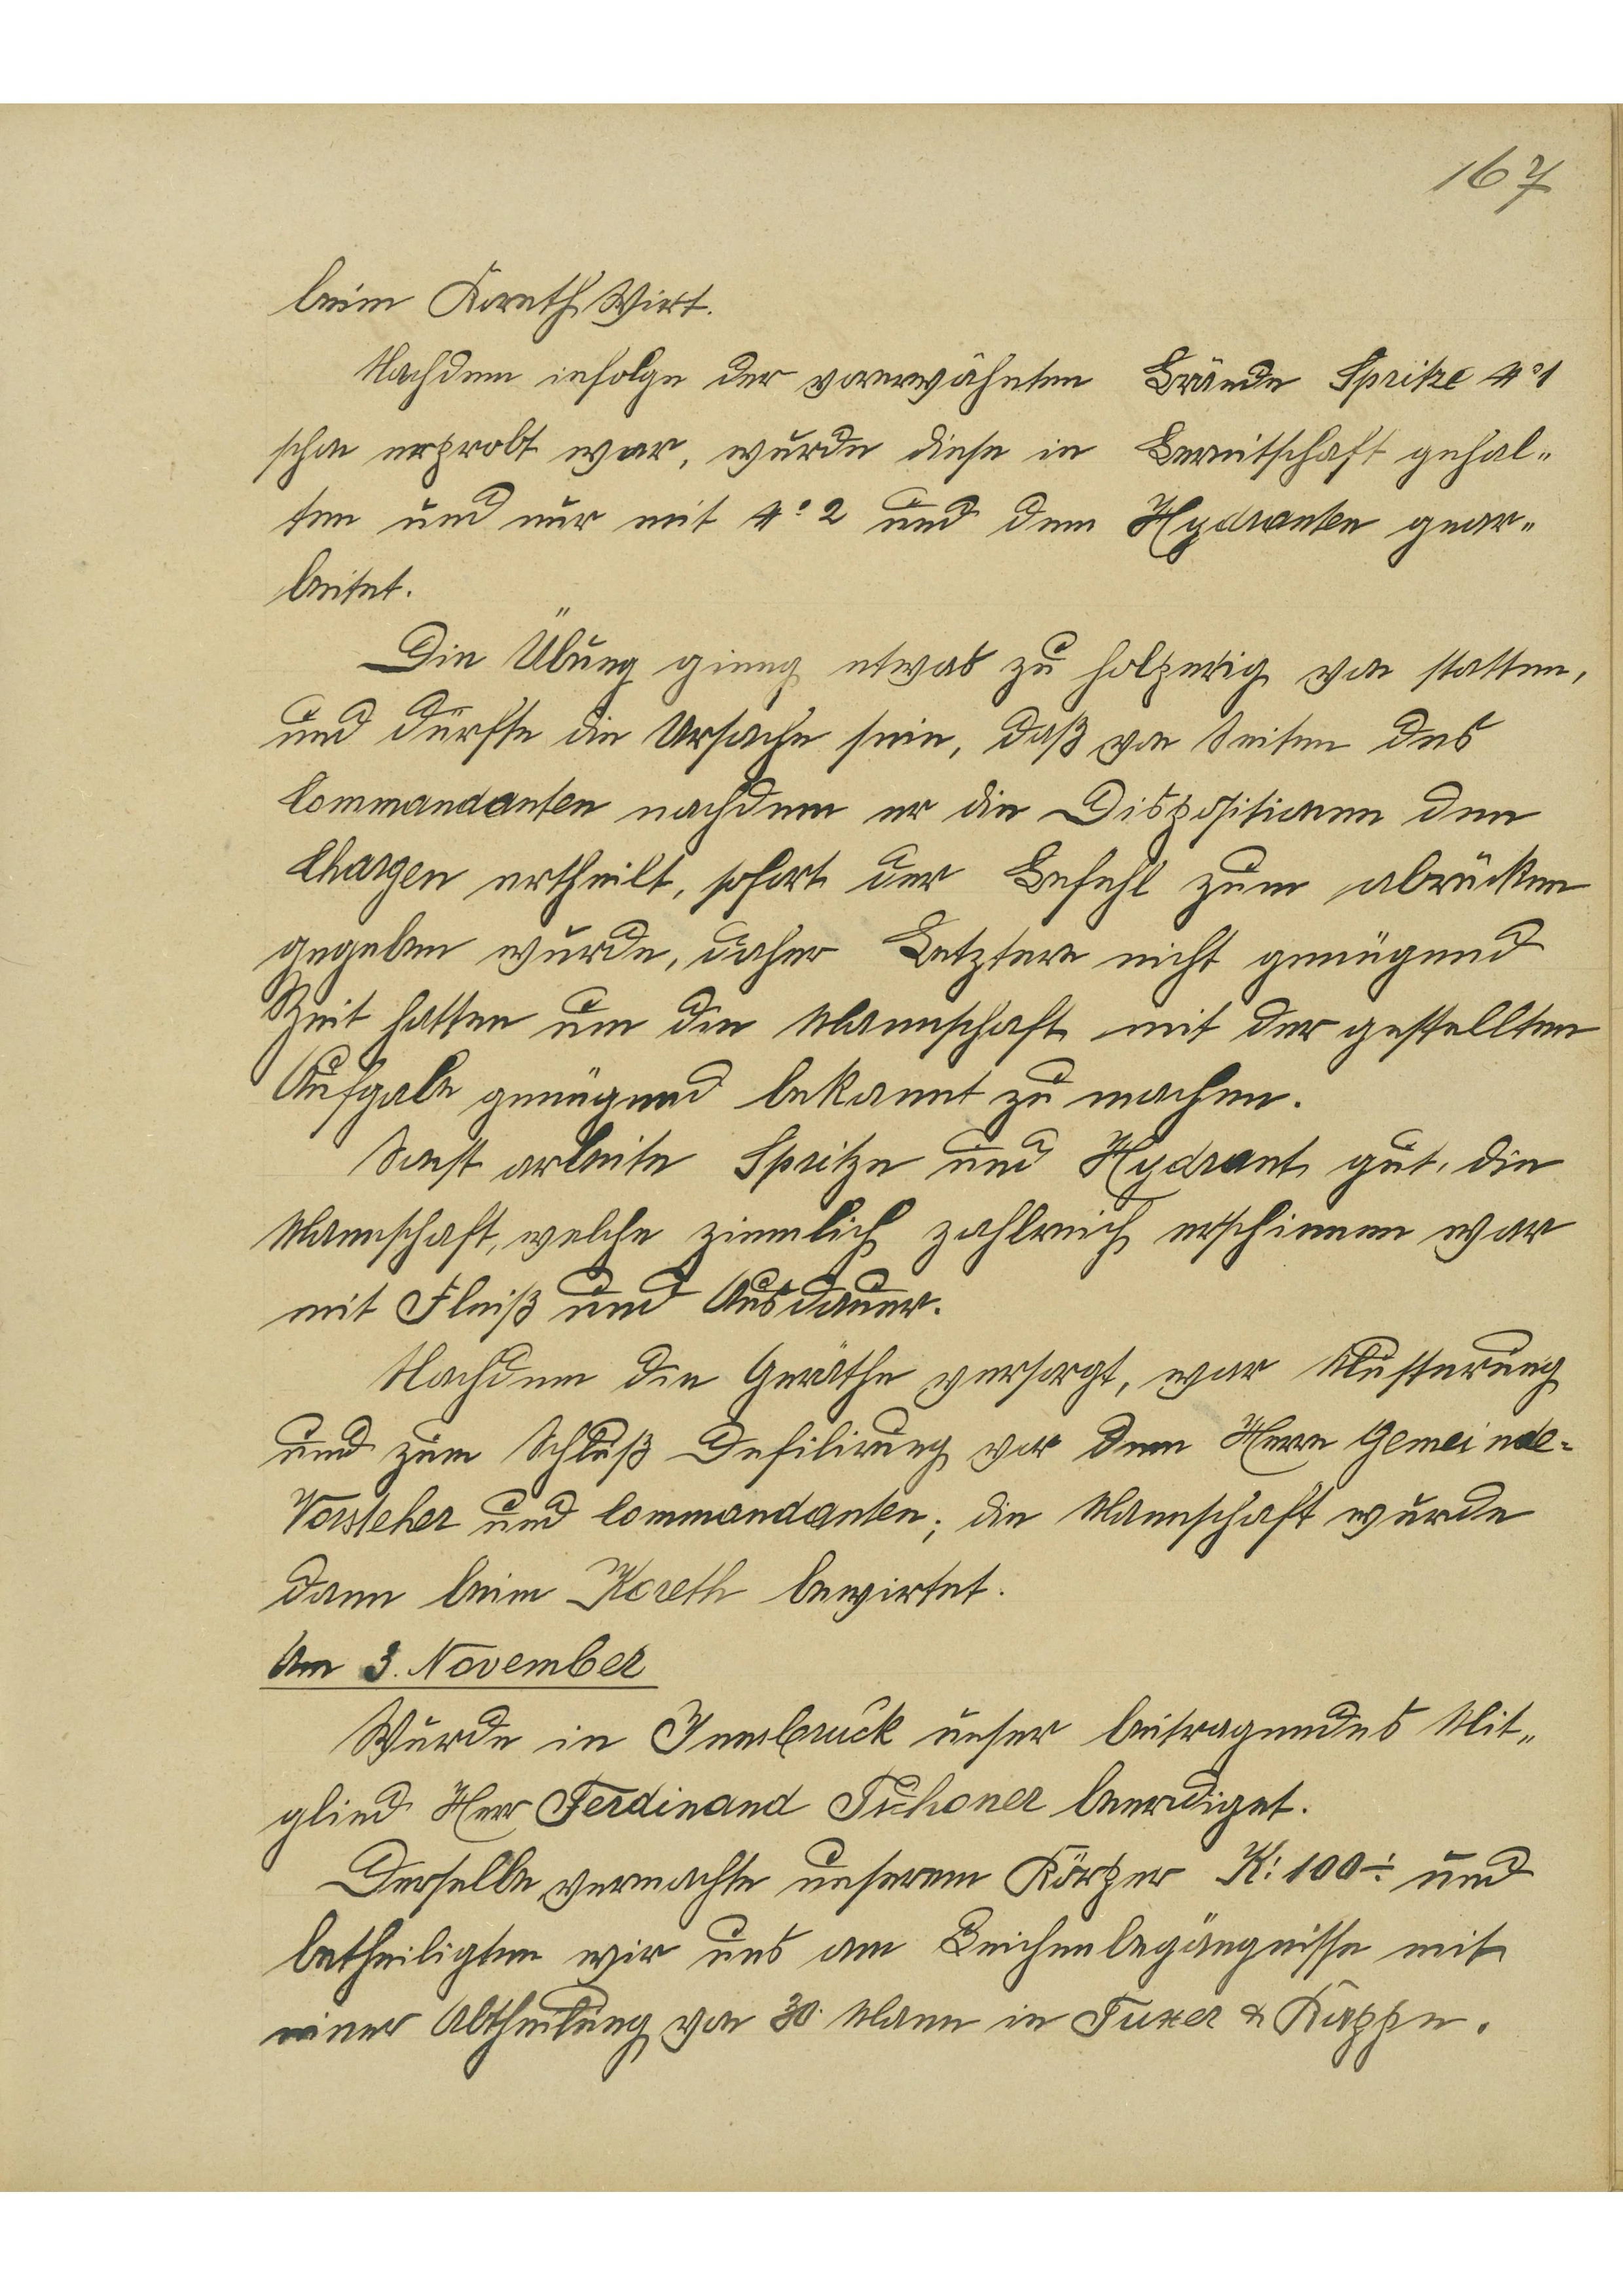 167
beim Koreth Wirt.
Nachdem infolge der vorerwähnten Brände Spritze No 1
schon erprobt war, wurde diese in Bereitschaft gehal-
ten und nur mit No 2 und dem Hydranten gear-
beitet.
Die Übung gieng etwas zu holperig von statten,
und dürfte die Ursache sein, daß von Seiten des
Commandanten nachdem er die Dispositionen den
Chargen ertheilt, sofort der Befehl zum abrücken
gegeben wurde, daher Letztere nicht genügend
Zeit hatten um die Mannschaft mit der gestellten
Aufgabe genügend bekannt zu machen.
Sonst arbeite Spritze und Hydrant gut, die
Mannschaft, welche ziemlich zahlreich erschienen war
mit Fleiß und Ausdauer.
Nachdem die Geräthe versorgt, war Musterung
und zum Schluß Defilirung vor dem Herrn Gemeinde-
Vorsteher und Commandanten; die Mannschaft wurde
dann beim Koreth bewirtet.
Am 3. November
Wurde in Innsbruck unser beitragendes Mit-
glied Herr Ferdinand Tschoner beerdiget.
Derselbe vermachte unserem Körper K: 100÷ und
betheiligten wir uns am Leichenbegängnisse mit
einer Abtheilung von 30. Mann in Tuxer & Kappe.